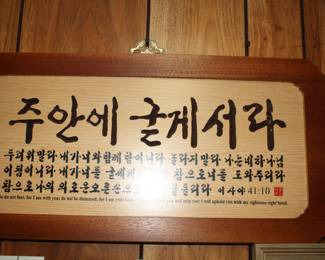 주 안에 굳게 서라
두려워 말라 내가 너와 함께 함이니라 놀라지 말라 나는 네 하나님
이 됨이니라 내가 너를 굳세게 하리라 참으로 너를 도와주리라
참으로 나의 의로운 오른손으로 너를 붙들리라 이사야 41:10
do not fear, for I am with you; do not be dismayed, for I am your God. I will strengthen you and help you; I will uphold you with my righteous right hand.